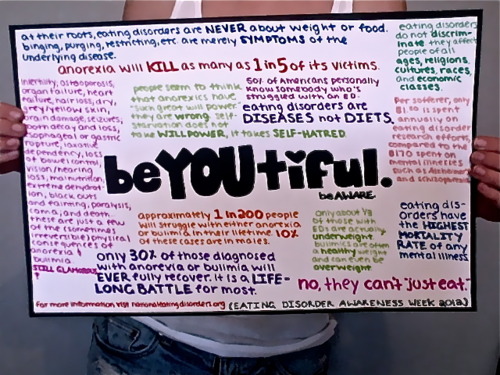 at their roots, eating disorders are NEVER about weight or food.
binging, purging, restricting, etc. are merely SYMPTOMS of the
underlying disease.
anorexia will KILL as many as 1 in 5 of its victims.
eating disorders
do not discrim-
inate they affect
people of all
ages, religions,
cultures, races,
and economic
classes.
infertility, osteoporosis,
organ failure, heart
failure, hair loss, dry/
grey/yellow skin,
brain damage, seizures,
tooth decay and loss,
esophageal or gastric
rupture, laxative
dependency, loss
of bowel control,
vision/hearing
loss, malnutrition
extreme dehydrat-
ion, black outs
and fainting, paralysis,
coma, and death.
these are just a few
of the (sometimes
irreversible) physical
consequences of
anorexia &
bulimia.
STILL GLAMOROUS
?
people seem to think
that anorexics have
such great will power.
they are wrong. self-
starvation does not
take WILL POWER, it takes SELF-HATRED.
50% of Americans personally
know somebody who's
struggled with an ED.
eating disorders are
DISEASES not DIETS.
per sufferer, only
is spent
annually on
eating disorder
research efforts,
compared to the
spent on
mental illnesses
such as Alzheimer's
and schizophrenia
beYOUtiful.
be AWARE.
approximately 1 in 200 people
will struggle with either anorexia
or bulimia in their lifetime. 10%
of these cases are in males.
only about 1/3
of those with
EDs are actually
underweight.
bulimics are often
a healthy weight
and can even be
overweight.
eating dis-
orders have
the HIGHEST
MORTALITY
RATE of any
mental illness.
only 30% of those diagnosed
with anorexia or bulimia will
EVER fully recover. it is a LIFE-
LONG BATTLE for most.
no, they can't "just eat."
for more information visit nationaleatingdisorders.org
(EATING DISORDER AWARENESS WEEK 2012)